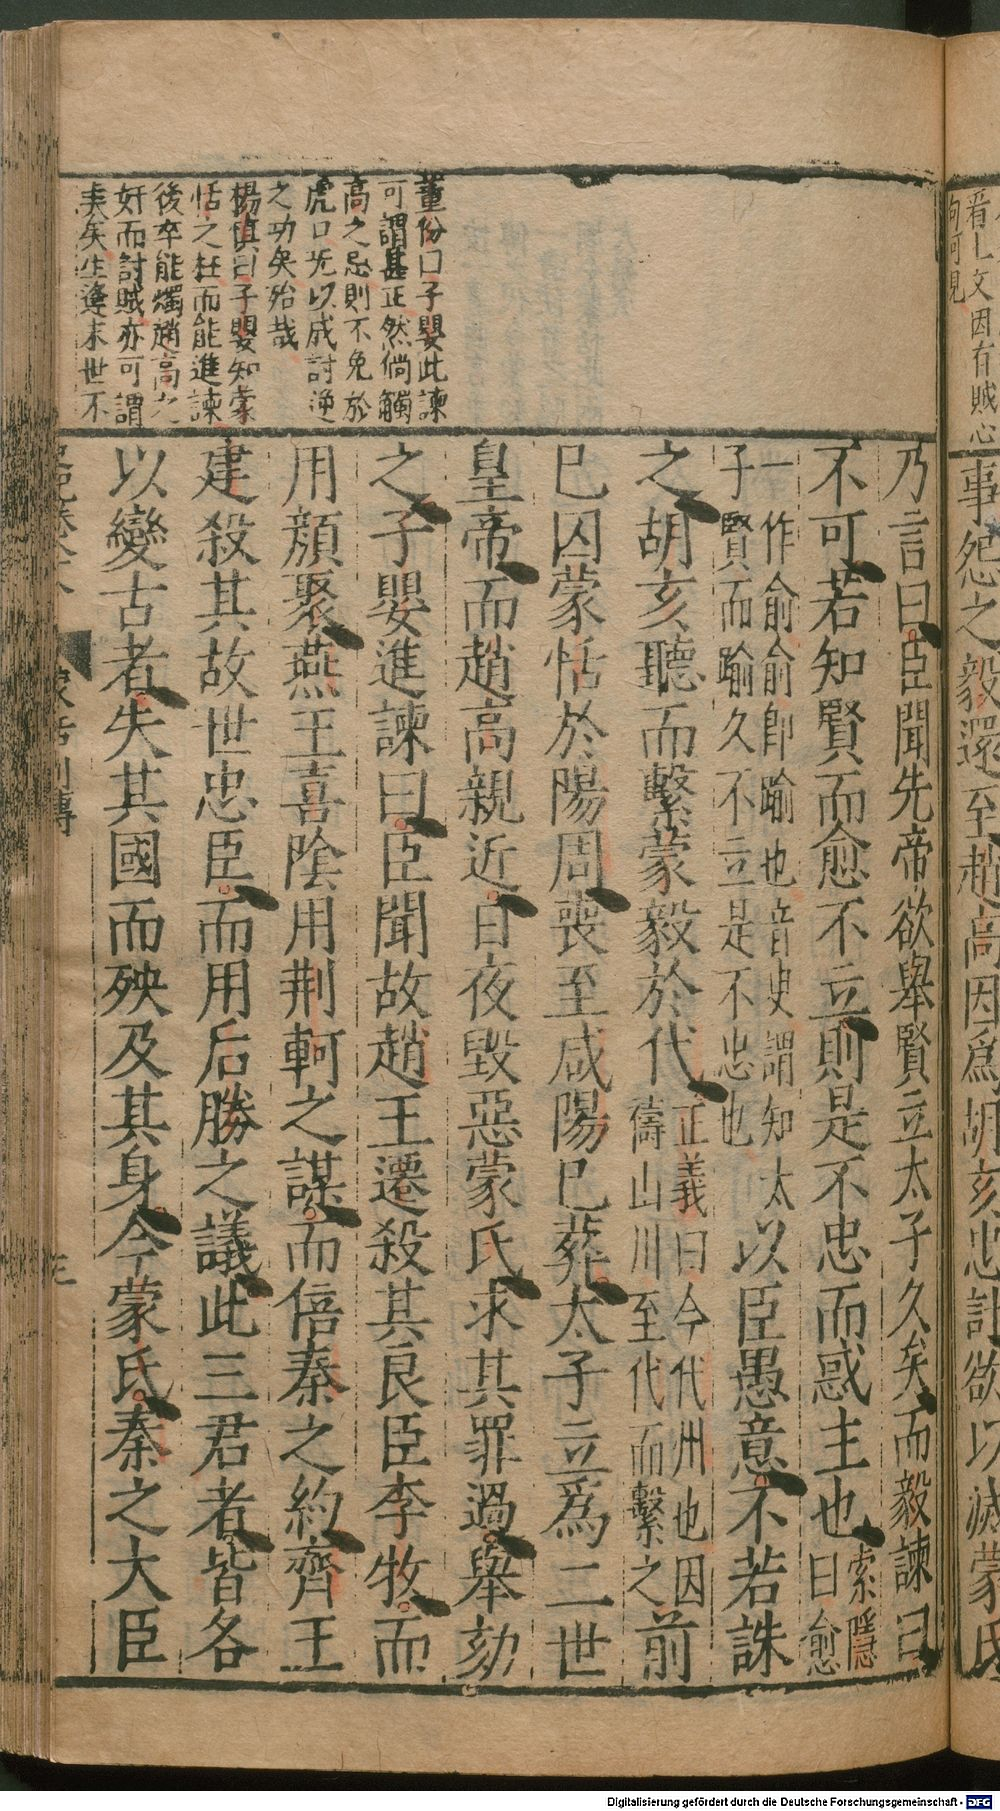 看上文因有賊心
句可見
事怨之毅還至趙高因爲胡亥忠計欲以滅蒙氏
董份曰子嬰此諫
可謂甚正然倘觸
高之忌則不免於
虎口兂以成討逆
之功矣殆哉
楊慎曰子嬰知蒙
恬之枉而能進諫
後卒能燭趙高之
奸而討賊亦可謂
矣生逢末世不
乃言曰臣聞先帝欲舉賢立太子久矣而毅諫曰
不可若知賢而愈不立則是不忠而惑主也索隱曰愈
一作俞俞即踰也音臾謂知太
子賢而踰久不立是不忠也
以臣愚意不若誅
之胡亥聽而繫蒙毅於代正義曰今代州也因
禱山川至代而繫之前
已囚蒙恬於陽周喪至咸陽已葬太子立爲二世
皇帝而趙高親近日夜毀惡蒙氏求其罪過舉劾
之子嬰進諫曰臣聞故趙王遷殺其良臣李牧而
用顏聚燕王喜陰用荆軻之謀而倍秦之約齊王
建殺其故世忠臣而用后勝之議此三君者皆各
以變古者失其國而殃及其身今蒙氏秦之大臣
蒙恬列傳
Digitalisierung gefördert durch die Deutsche Forschungsgemeinschaft - DFG